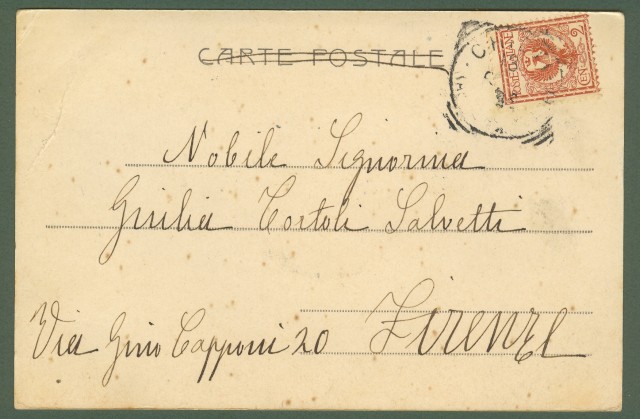 CARTE POSTALE
POSTE ITALIANE
CENT 2
Nobile Signorina
Giulia Tortoli Salvetti
Via Gino Capponi 20 Firenze